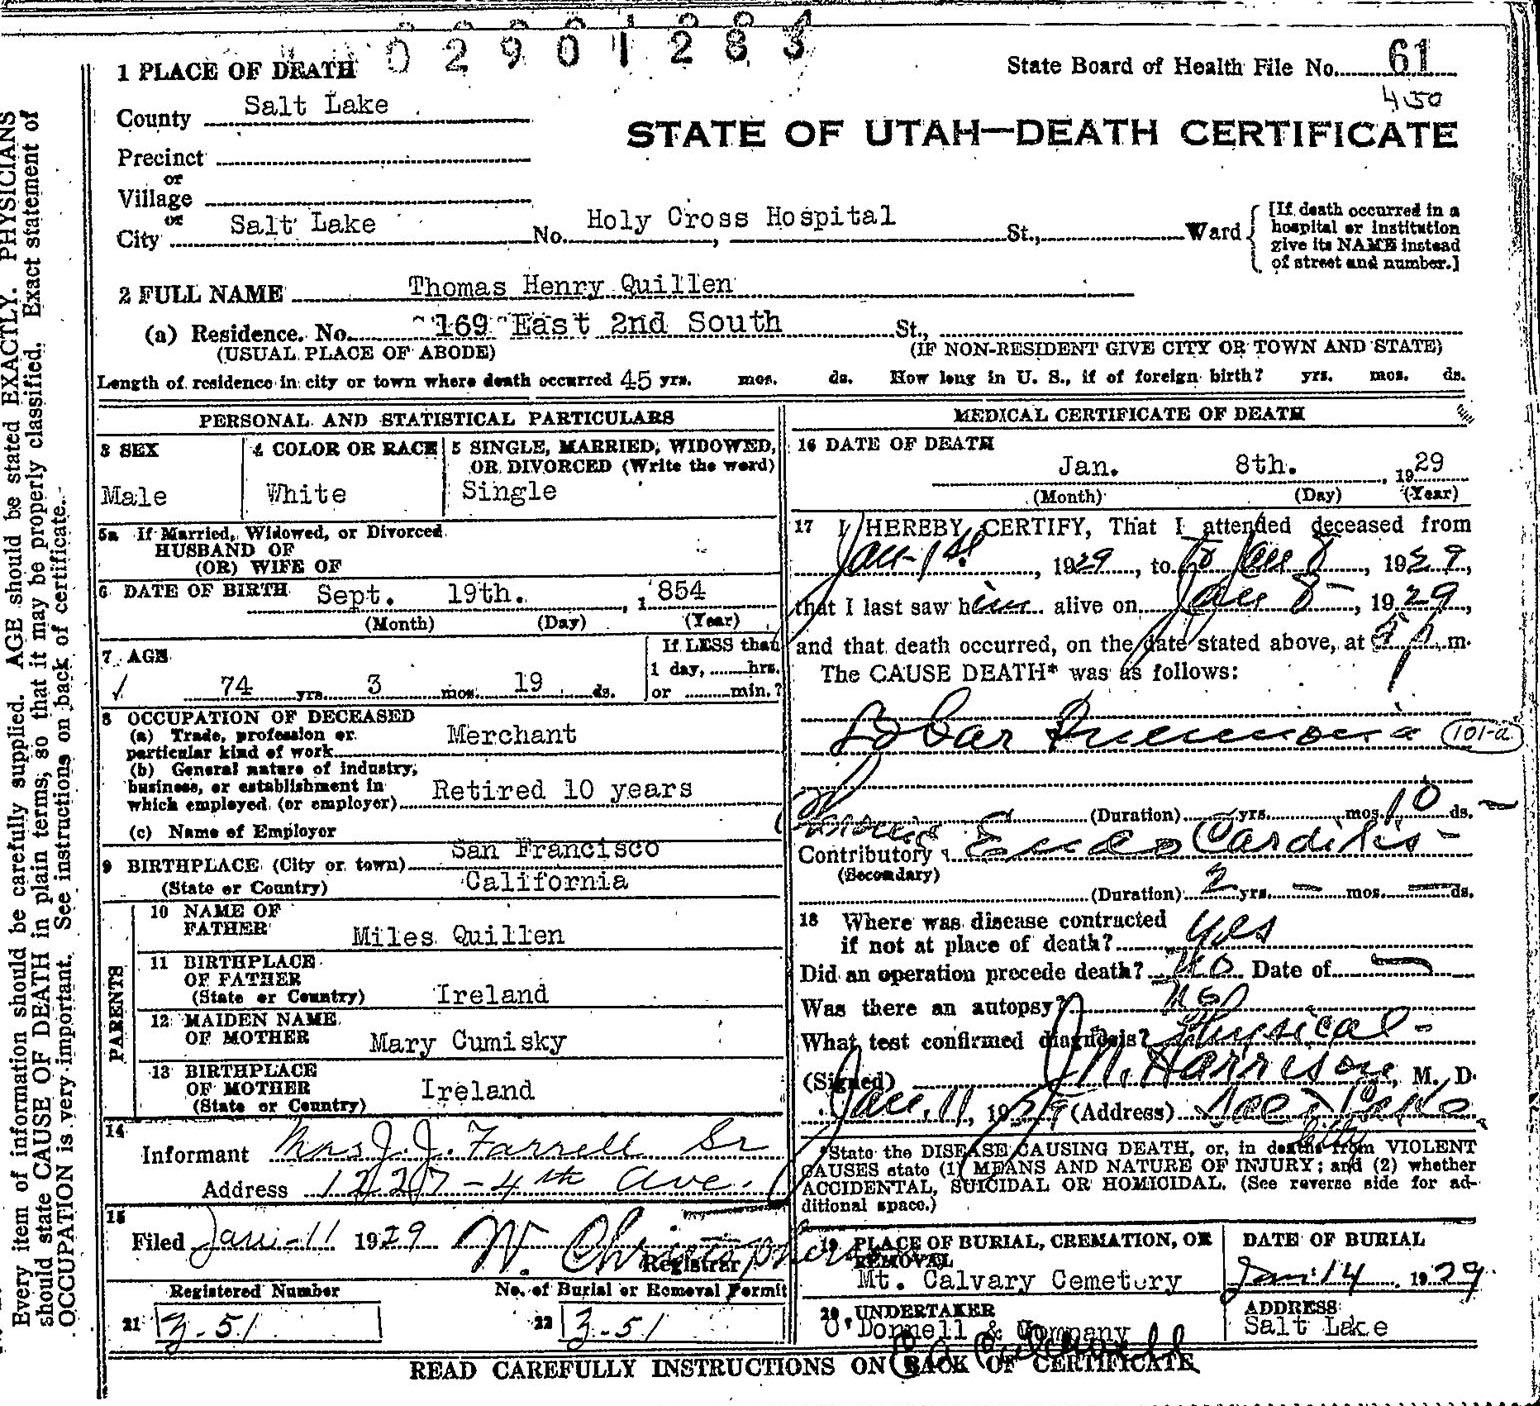 02901284
1 PLACE OF DEATH
State Board of Health File No. 61
450
County Salt Lake
STATE OF UTAH—DEATH CERTIFICATE
Precinct
or
Village
or
City Salt Lake No. Holy Cross Hospital St., Ward
[If death occurred in a
hospital or institution
give its NAME instead
of street and number.]
2 FULL NAME Thomas Henry Quillen
(a) Residence. No. 169 East 2nd South St.,
(USUAL PLACE OF ABODE) (IF NON-RESIDENT GIVE CITY OR TOWN AND STATE)
Length of residence in city or town where death occurred 45 yrs. mos. ds. How long in U. S., if of foreign birth? yrs. mos. ds.
PERSONAL AND STATISTICAL PARTICULARS
3 SEX
Male
4 COLOR OR RACE
White
5 SINGLE, MARRIED, WIDOWED,
OR DIVORCED (Write the word)
Single
5a If Married, Widowed, or Divorced
HUSBAND OF
(OR) WIFE OF
6 DATE OF BIRTH Sept. 19th. , 1854
(Month) (Day) (Year)
7 AGE
74 yrs. 3 mos. 19 ds.
If LESS than
1 day, hrs.
or min.?
8 OCCUPATION OF DECEASED
(a) Trade, profession or
particular kind of work Merchant
(b) General nature of industry,
business, or establishment in
which employed (or employer) Retired 10 years
(c) Name of Employer
9 BIRTHPLACE (City or town) San Francisco
(State or Country) California
PARENTS
10 NAME OF
FATHER Miles Quillen
11 BIRTHPLACE
OF FATHER
(State or Country) Ireland
12 MAIDEN NAME
OF MOTHER Mary Cumisky
13 BIRTHPLACE
OF MOTHER
(State or Country) Ireland
14
Informant Mrs J. J. Farrell Sr
Address 1227-4th Ave.
15
Filed Jan-11 1929 W. Christophers
Registrar
Registered Number
21 3-51
No. of Burial or Removal Permit
22 3-51
MEDICAL CERTIFICATE OF DEATH
16 DATE OF DEATH
Jan. 8th. , 1929
(Month) (Day) (Year)
17 I HEREBY CERTIFY, That I attended deceased from
Jan-1st, 1929, to Jan 8, 1929,
that I last saw him alive on Jan 8-, 1929,
and that death occurred, on the date stated above, at m.
The CAUSE DEATH* was as follows:
Lobar Pneumonia 101-a
(Duration) yrs. mos. 10 ds.
Chronic
Contributory Endo Carditis-
(Secondary)
(Duration) 2 yrs. — mos. — ds.
18 Where was disease contracted
if not at place of death? yes
Did an operation precede death? No Date of —
Was there an autopsy? No
What test confirmed diagnosis? Physical-
(Signed) Harrison, M. D.
Jan. 11, 1929 (Address) Salt Lake
City
*State the DISEASE CAUSING DEATH, or, in deaths from VIOLENT
CAUSES state (1) MEANS AND NATURE OF INJURY; and (2) whether
ACCIDENTAL, SUICIDAL OR HOMICIDAL. (See reverse side for ad-
ditional space.)
19 PLACE OF BURIAL, CREMATION, OR
REMOVAL
Mt. Calvary Cemetery
DATE OF BURIAL
Jan. 14 1929
20 UNDERTAKER
O'Donnell & Company
ADDRESS
Salt Lake
READ CAREFULLY INSTRUCTIONS ON BACK OF CERTIFICATE
Every item of information should be carefully supplied. AGE should be stated EXACTLY. PHYSICIANS
should state CAUSE OF DEATH in plain terms, so that it may be properly classified. Exact statement of
OCCUPATION is very important. See instructions on back of certificate.